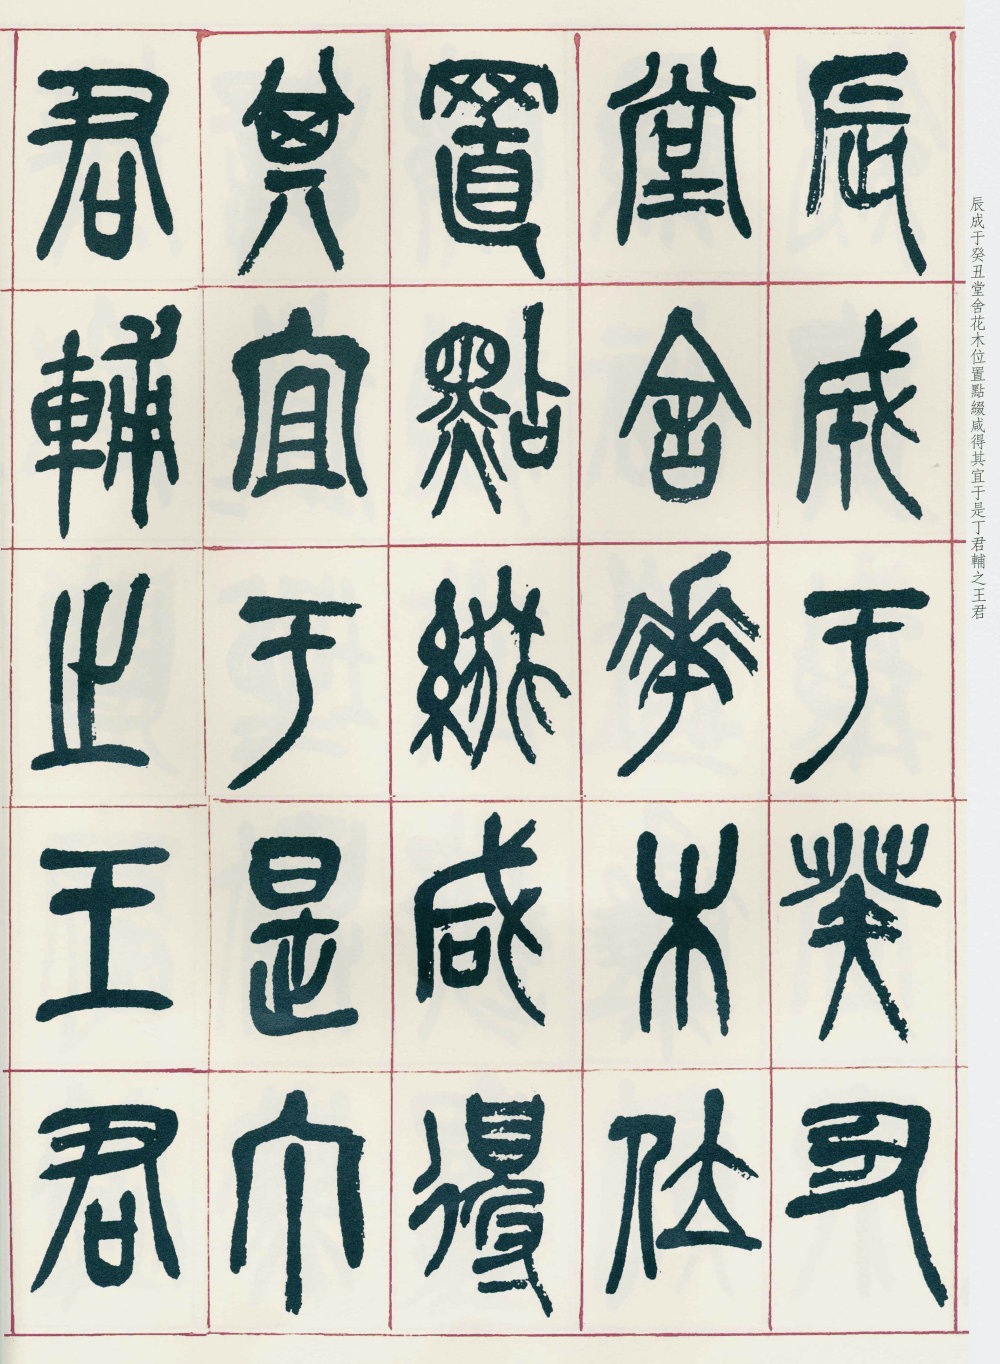 辰成于癸丑
堂舍花木位
置點綴咸得
其宜于是丁
君輔之王君
辰成于癸丑堂舍花木位置點綴咸得其宜于是丁君輔之王君